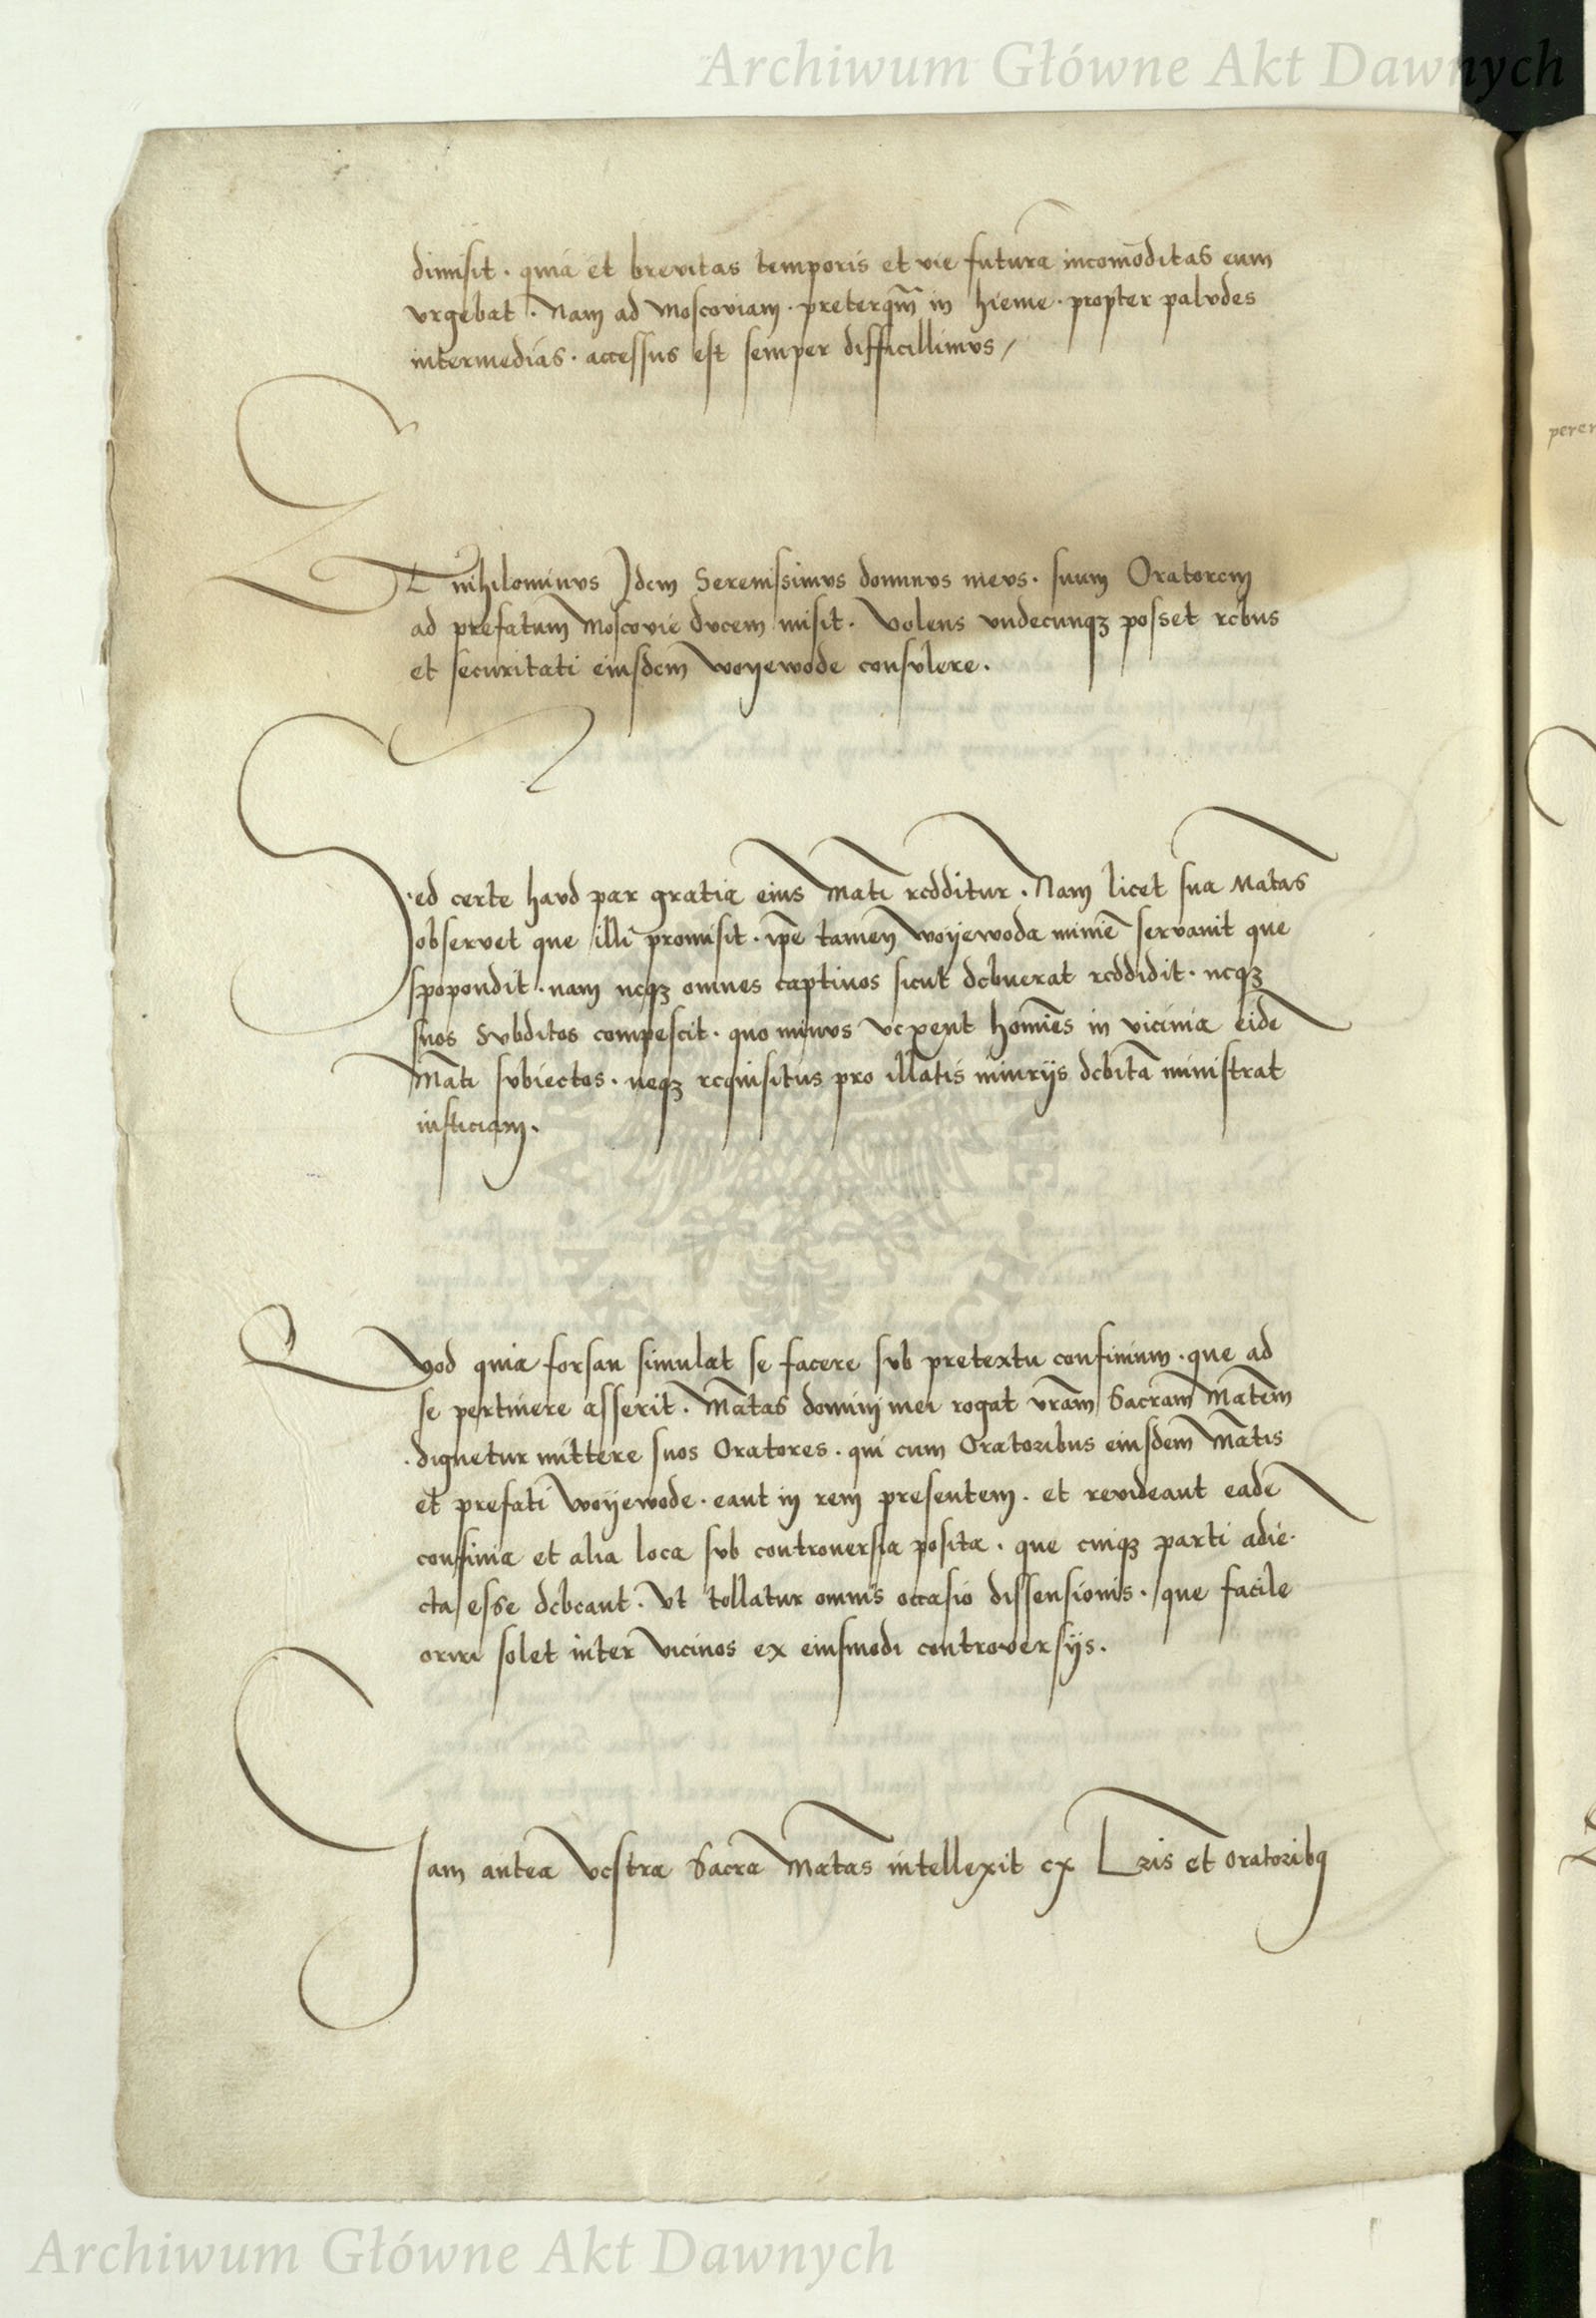 Archiwum Główne Akt Dawnych
dimisit . quia et brevitas temporis et vie futura incomōditas eum
vrgebat . Nam ad Moscoviam . preterqm̄ in hieme . propter palvdes
intermedias . accessus est semper difficillimvs /
Et nihilominvs Idem Serenissimvs dominvs mevs . suum Oratorem
ad prefatum Moscovie dvcem misit . Volens vndecunqʒ posset rebus
et securitati eiusdem woyewode consvlere .
Sed certe havd par gratia eius Mati redditur . Nam licet sua Matas
observet que illi promisit . ip̄e tamen woyewoda minīe servavit que
spopondit . nam neqʒ omnes captivos sicut debuerat reddidit . neqʒ
suos svbditos compescit . quo minvs vexent homīes in vicinia eidē
Mati svbiectos . neqʒ requisitus pro illatis iniurijs debita ministrat
iusticiam .
Quod quia forsan simulat se facere svb pretextu confinium . que ad
se pertinere asserit . Mātas domini mei rogat vrām Sacram Mātem
. dignetur mittere suos Oratores . qui cum Oratoribus eiusdem Mātis
et prefati woyewode . eant in rem presentem . et revideant eadē
confinia et alia loca svb controversia posita . que cuiqʒ parti adie-
cta esse debeant . Vt tollatur omnis occasio dissensionis . que facile
oriri solet inter vicinos ex eiusmodi controversijs .
Iam antea Vestra Sacra Matas intellexit ex Lris et oratoribꝗ
perer
Archiwum Główne Akt Dawnych